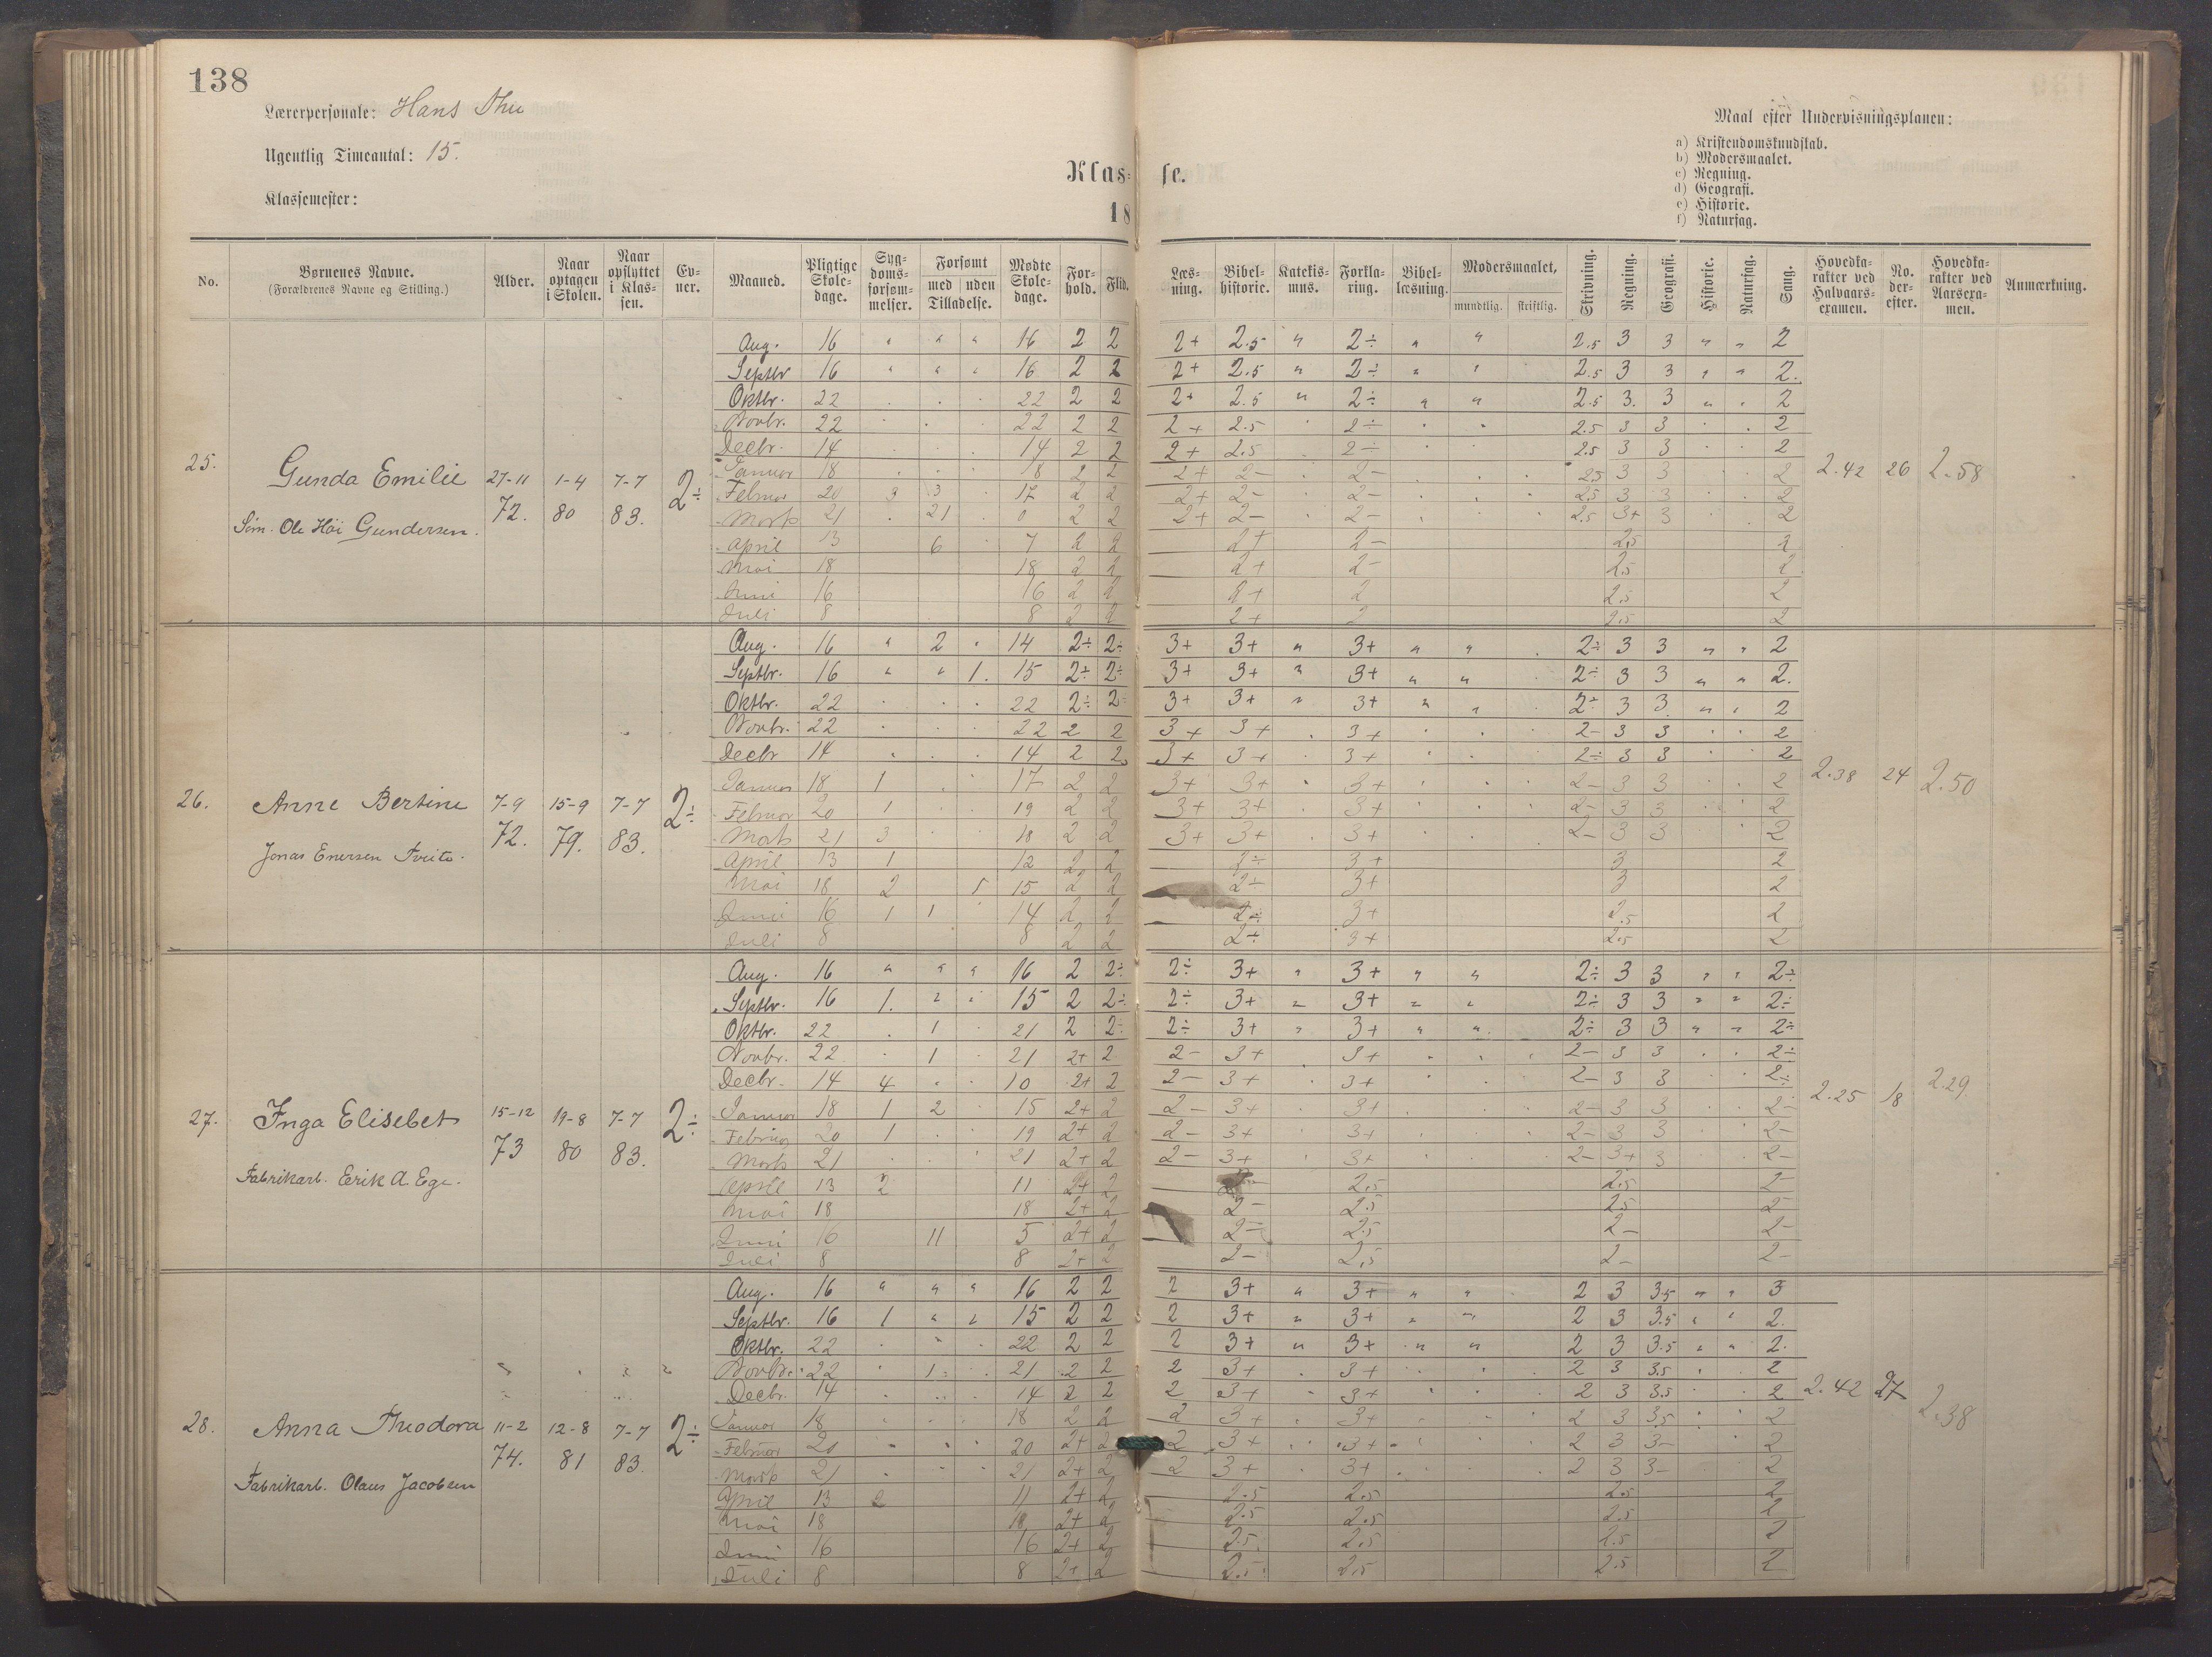 138
Lærerpersonale: Hans Thu
Ugentlig Timeantal: 15.
Klassemester:
Klas- se.
18
Maal efter Undervisningsplanen:
a) Kristendomskundskab.
b) Modersmaalet.
c) Regning.
d) Geografi.
e) Historie.
f) Naturfag.
No. Børnenes Navne. (Forældrenes Navne og Stilling.) Alder. Naar optagen i Skolen. Naar opflyttet i Klassen. Evner. Maaned. Pligtige Skoledage. Sygdomsforsømmelser. Forsømt med uden Tilladelse. Mødte Skoledage. Forhold. Flid. Læsning. Bibelhistorie. Katekismus. Forklaring. Bibellæsning. Modersmaalet, mundtlig. skriftlig. Skrivning. Regning. Geografi. Historie. Naturfag. Sang. Hovedkarakter ved Halvaarsexamen. No. derefter. Hovedkarakter ved Aarsexamen. Anmærkning.
25. Gunda Emilie 27-11 72. 1-4 80 7-7 83. 2÷ 2.42 26 2.58
Søm. Ole Höi Gundersen.
Aug. 16 " " " 16 2 2 2+ 2.5 " 2÷ " " 2.5 3 3 " " 2
Septbr 16 " " " 16 2 2 2+ 2.5 " 2÷ " " 2.5 3 3 " " 2.
Oktbr. 22 . . . 22 2 2 2+ 2.5 " 2÷ " " 2.5 3. 3 " " 2
Novbr. 22 . . 22 2 2 2+ 2.5 . 2÷ . . 2.5 3 3 . . 2
Decbr. 14 . . . 14 2 2 2+ 2.5 . 2÷ . . 2.5 3 3 . . 2
Januar 18 . . . 18 2 2 2+ 2- . 2- . . 2.5 3 3 . . 2
Februar 20 3 3 . 17 2 2 2+ 2- . 2- . . 2.5 3 3 . . 2
Marts 21 . 21 . 0 2 2 2+ 2- . 2- . . 2.5 3+ 3 . . 2
April 13 6 7 2 2 2+ 2- 2.5 2
Mai 18 18 2 2 2+ 2- 2.5 2
Juni 16 16 2 2 2+ 2 2.5 2
Juli 8 8 2 2 2+ 2 2.5 2
26. Anne Bertine 7-9 72. 15-9 79. 7-7 83. 2÷ 2.38 24 2.50
Jonas Enersen Tveito.
Aug. 16 " 2 " 14 2÷ 2÷ 3+ 3+ " 3+ " " 2÷ 3 3 " " 2
Septbr. 16 " " 1. 15 2÷ 2÷ 3+ 3+ " 3+ " " 2÷ 3 3 " " 2.
Oktbr. 22 . . . 22 2÷ 2÷ 3+ 3+ " 3+ " " 2÷ 3 3 " " 2
Novbr. 22 . . . 22 2 2 3+ 3+ . 3+ . . 2- 3 3 . . 2
Decbr 14 . . . 14 2 2 3+ 3+ . 3+ . . 2÷ 3 3 . . 2
Januar 18 1 . 17 2 2 3+ 3+ . 3+ . . 2- 3 3 . . 2
Februar 20 1 . . 19 2 2 3+ 3+ . 3+ . . 2- 3 3 . . 2
Marts 21 3 . . 18 2 2 3+ 3+ 3+ . . 2- 3 3 . . 2
April 13 1 12 2 2 2÷ 3+ 3 2
Mai 18 2 1 15 2 2 2÷ 3+ 3 2
Juni 16 1 1 14 2 2 2÷ 3+ 2.5 2
Juli 8 8 2 2 2÷ 3+ 2.5 2
27. Inga Elisebet 15-12 73 19-8 80 7-7 83. 2÷ 2.25 18 2.29
Fabrikarb. Eerik A. Ege.
Aug. 16 " " " 16 2 2÷ 2÷ 3+ " 3+ " " 2÷ 3 3 " " 2÷
Septbr. 16 1. " " 15 2 2÷ 2÷ 3+ " 3+ " " 2÷ 3 3 " " 2÷
Oktbr. 22 . 1 . 21 2 2÷ 2÷ 3+ " 3+ " " 2÷ 3 3 " " 2÷
Novbr. 22 . 1 . 21 2+ 2 2- 3+ . 3+ . . 2- 3 3 . . 2÷
Decbr. 14 4 . . 10 2+ 2 2- 3+ . 3+ . . 2- 3 3 . . 2÷
Januar 18 1 2 15 2+ 2 2- 3+ . 3+ . . 2- 3 3 . . 2-
Februar 20 1 . . 19 2+ 2 2- 3+ . 3+ . . 2- 3 3 . . 2-
Marts 21 . . . 21 2+ 2 2- 3+ . 3+ . . 2- 3+ 3 . . 2-
April 13 2 11 2+ 2 2.5 2.5 2-
Mai 18 18 2+ 2 2- 2.5 2.5 2-
Juni 16 11 5 2+ 2 2- 2.5 2- 2-
Juli 8 8 2+ 2 2- 2.5 2- 2-
28. Anna Theodora 11-2 74. 12-8 81 7-7 83. 2÷ 2.42 27 2.38
Fabrikarb. Olaus Jacobsen
Aug. 16 " " " 16 2 2 2 3+ " 3+ " " 2 3 3.5 " " 3
Septbr. 16 1 " " 15 2 2 2 3+ " 3+ " " 2 3 3.5 " " 2.
Oktbr. 22 . " . 22 2 2 2 3+ " 3+ " " 2 3 3.5 " " 2.
Novbr. 22 . 1 . 21 2 2 2 3+ . 3+ . . 2 3 3.5 . . 2
Decbr. 14 . . . 14 2 2 2 3+ . 3+ . . 2 3 3.5 . . 2
Januar 18 . . . 18 2 2 2 3+ . 3+ . . 2 3 3.5 . . 2
Februar 20 . . . 20 2+ 2 2 3+ . 3+ . . 2 3 3- . . 2
Marts 21 . . . 21 2+ 2 2 3+ . 3+ . . 2 3 3- . . 2
April 13 2 11 2+ 2 2.5 2.5 2.5 2
Mai 18 18 2+ 2 2.5 2.5 2.5 2
Juni 16 16 2+ 2 2.5 2.5 2.5 2
Juli 8 8 2+ 2 2.5 2.5 2.5 2